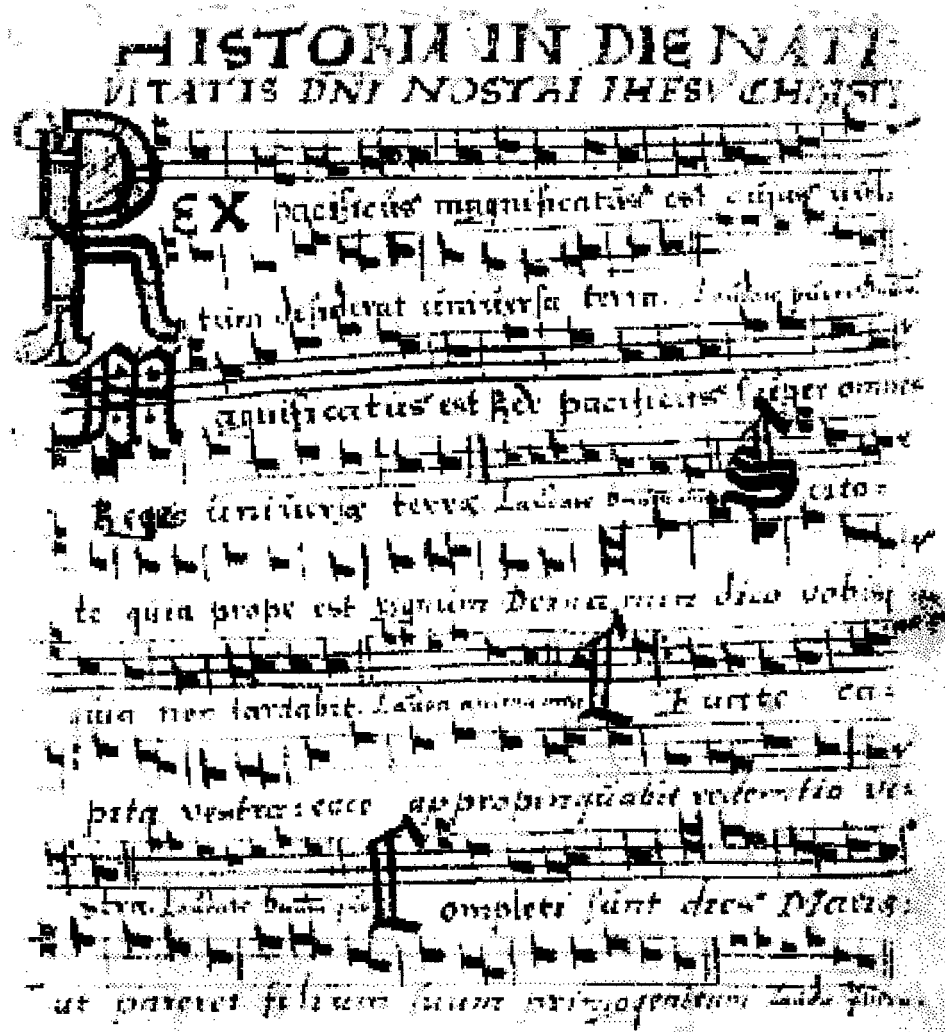 HISTORIA IN DIE NATI-
VITATIS DNI NOSTRI IHESV CHRISTI
REX pacificus magnificatus est cuius vul-
tum desiderat universa terra. Laudate pueri
Magnificatus est Rex pacificus super omnes
Reges universae terrae Laudate
te quia prope est regnum Dei amen dico vobis
quia non tardabit. Levate ca-
pita vestra: ecce appropinquabit redemptio ves-
tra. Laudate ompleti sunt dies Mariae:
ut pareret filium suum primogenitum